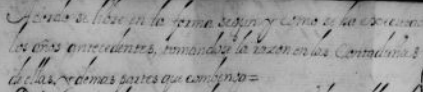 Acordo se hisiese en la forma segun y como se ha executado
los años antecedentes, tomandose la razon en las Contadurias
de ellas, y demas partes que combenga =